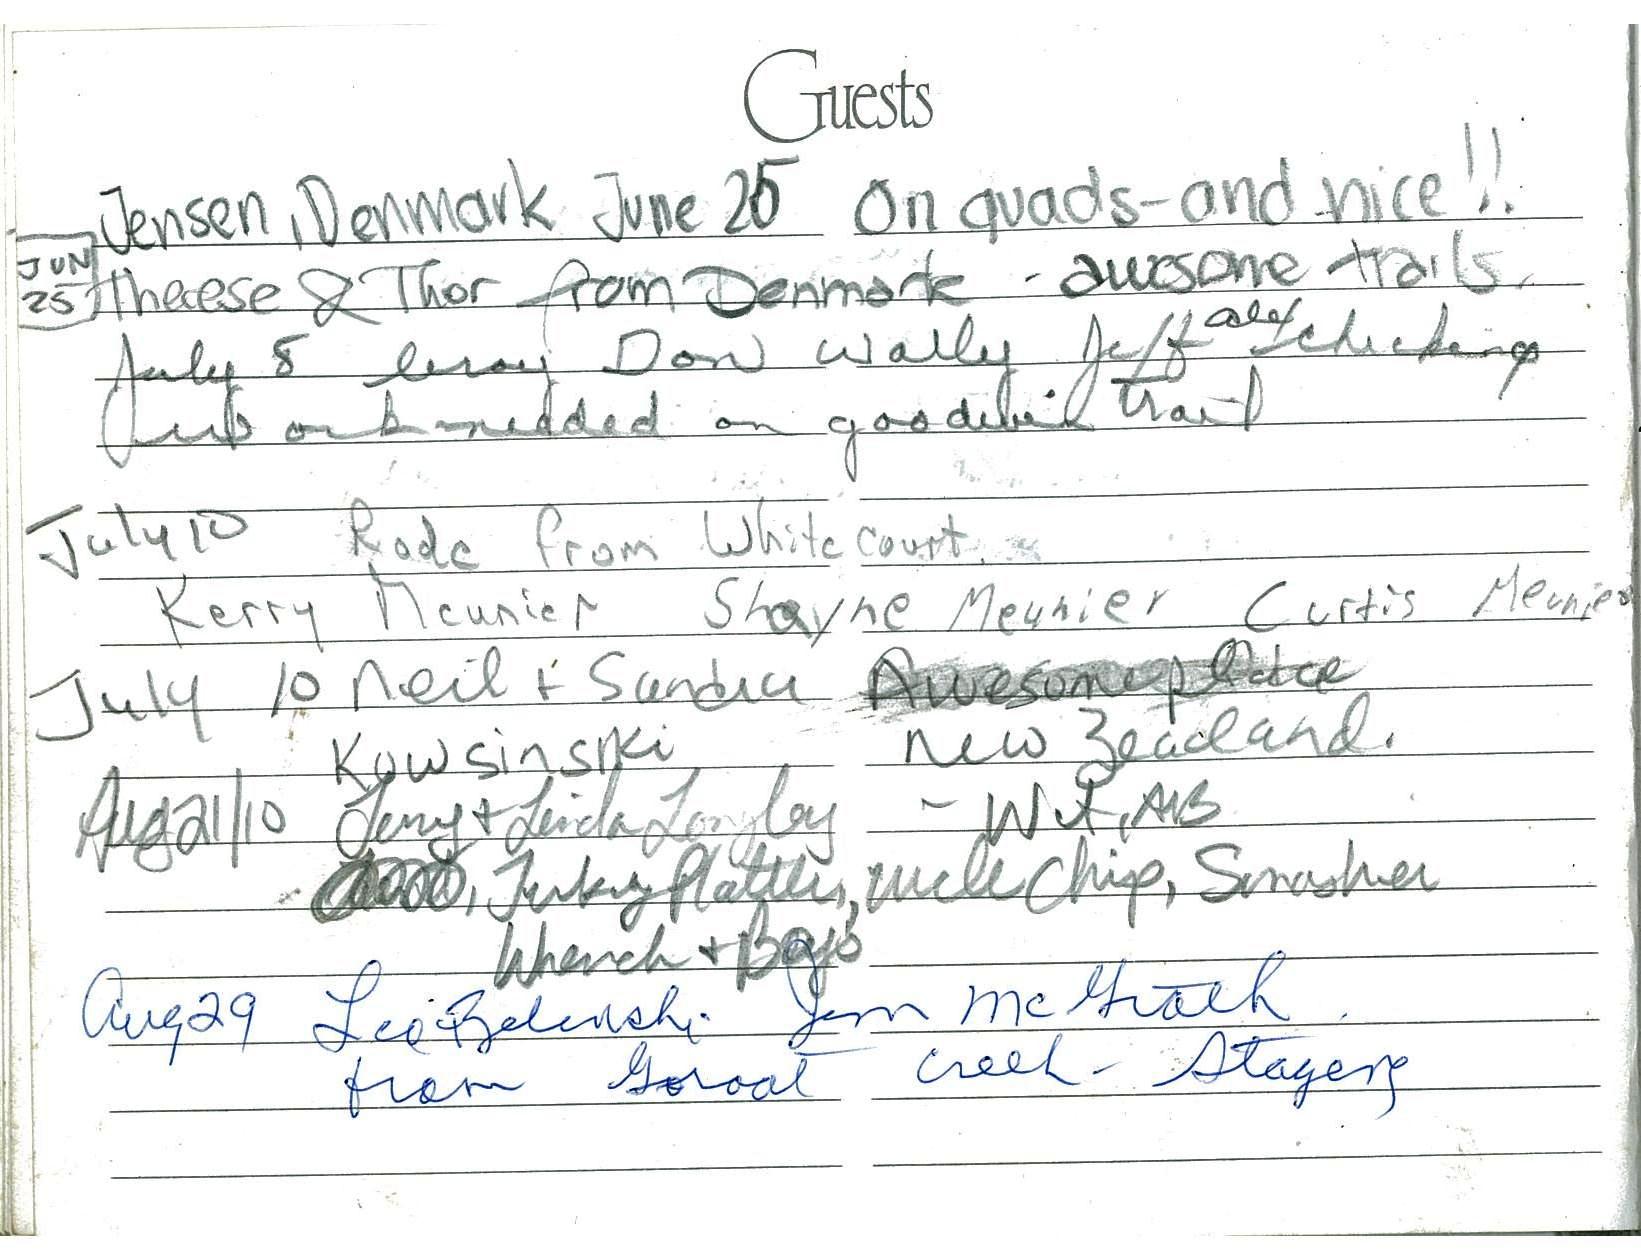 Guests
Jensen, Denmark June 25 On quads - and nice!!
JUN
25
Thereese & Thor from Denmark - awesome trails.
alex
July 8 leroy Don Wally Jeff
on goodwin trail
July 10 Rode from Whitecourt.
Kerry Meunier Shayne Meunier Curtis Meunier
July 10 Neil + Sandra Awesome place
Kowsinski New Zealand.
Aug 21/10 Terry + Linda Longley - Wct, AB
, Turkey Platter, uncle Chip, Smasher
Wrench + Bojo
Aug 29 Leo Zelenski. Jim McGrath.
from Groat creek - Staging